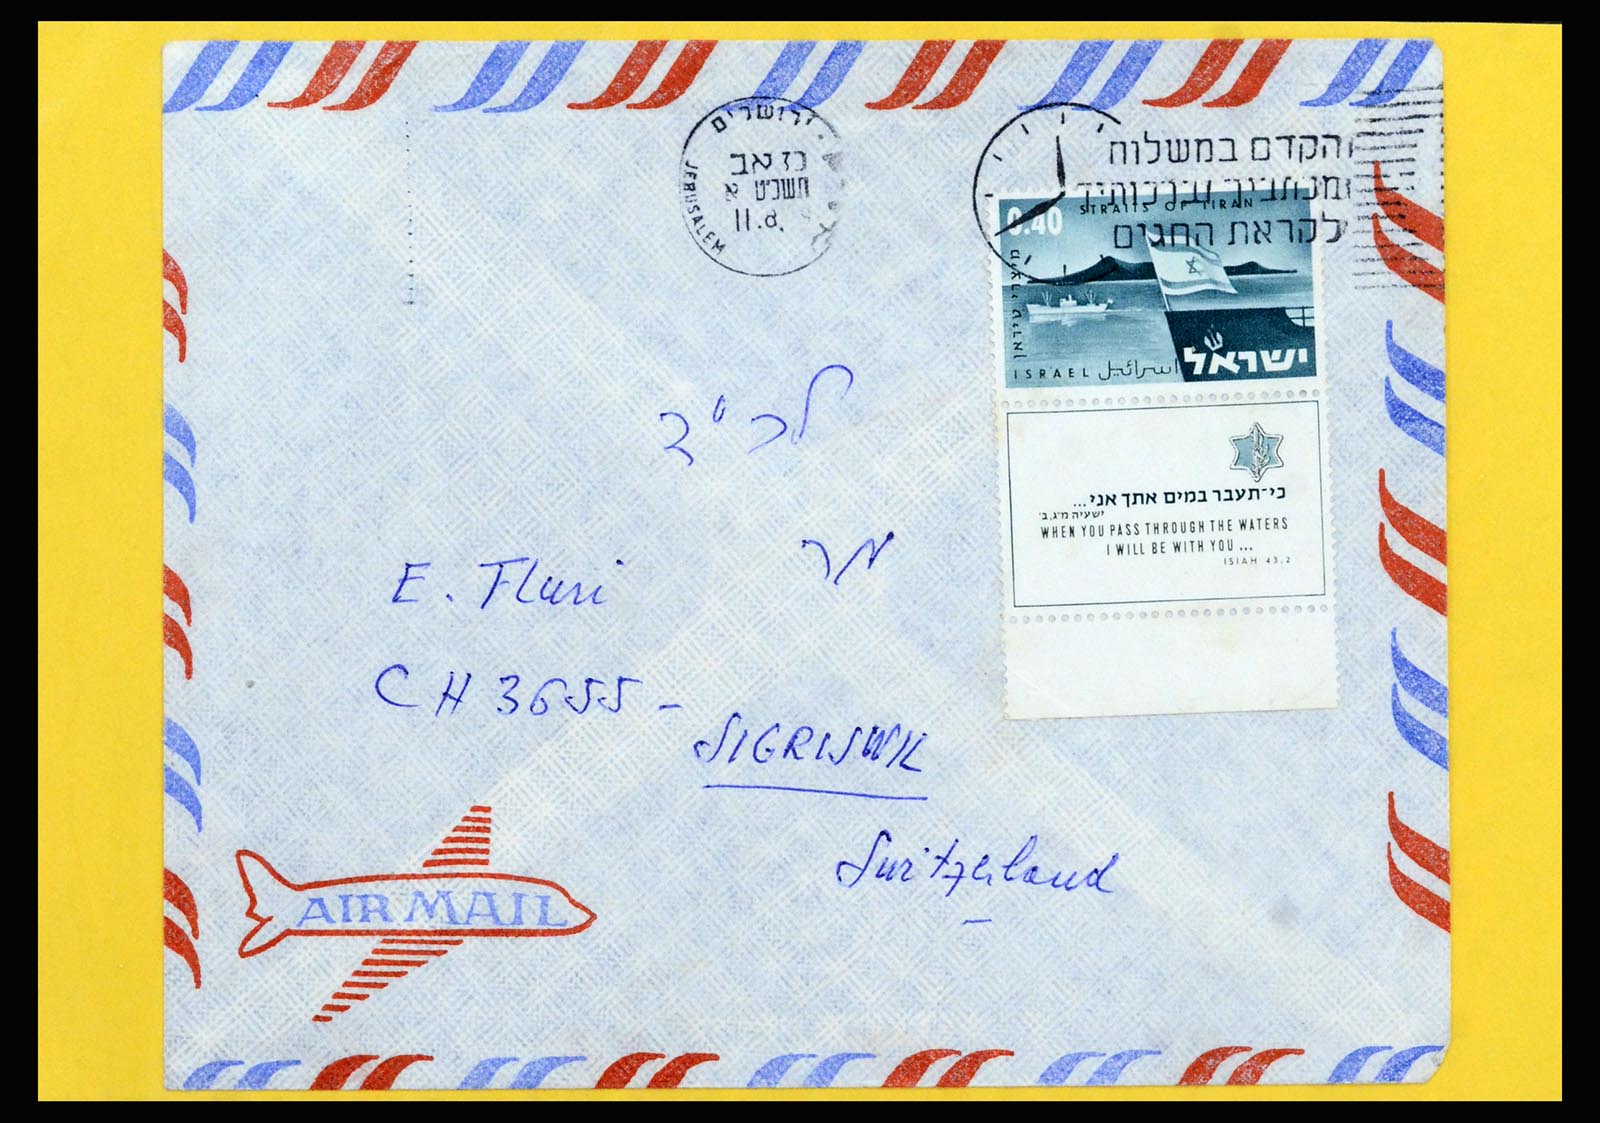 ירושלים
JERUSALEM
כז אב
תשכ״ט
11.8.
הקדם במשלוח
לקראת החגים
0.40
STRAITS OF TIRAN
מיצרי טיראן
ISRAEL اسرائيل ישראל
כי־תעבר במים אתך אני...
ישעיה מ״ג, ב׳
WHEN YOU PASS THROUGH THE WATERS
I WILL BE WITH YOU ...
ISIAH 43,2
E. Fluri
CH 3655 -
SIGRISWIL
Switzerland
AIR MAIL